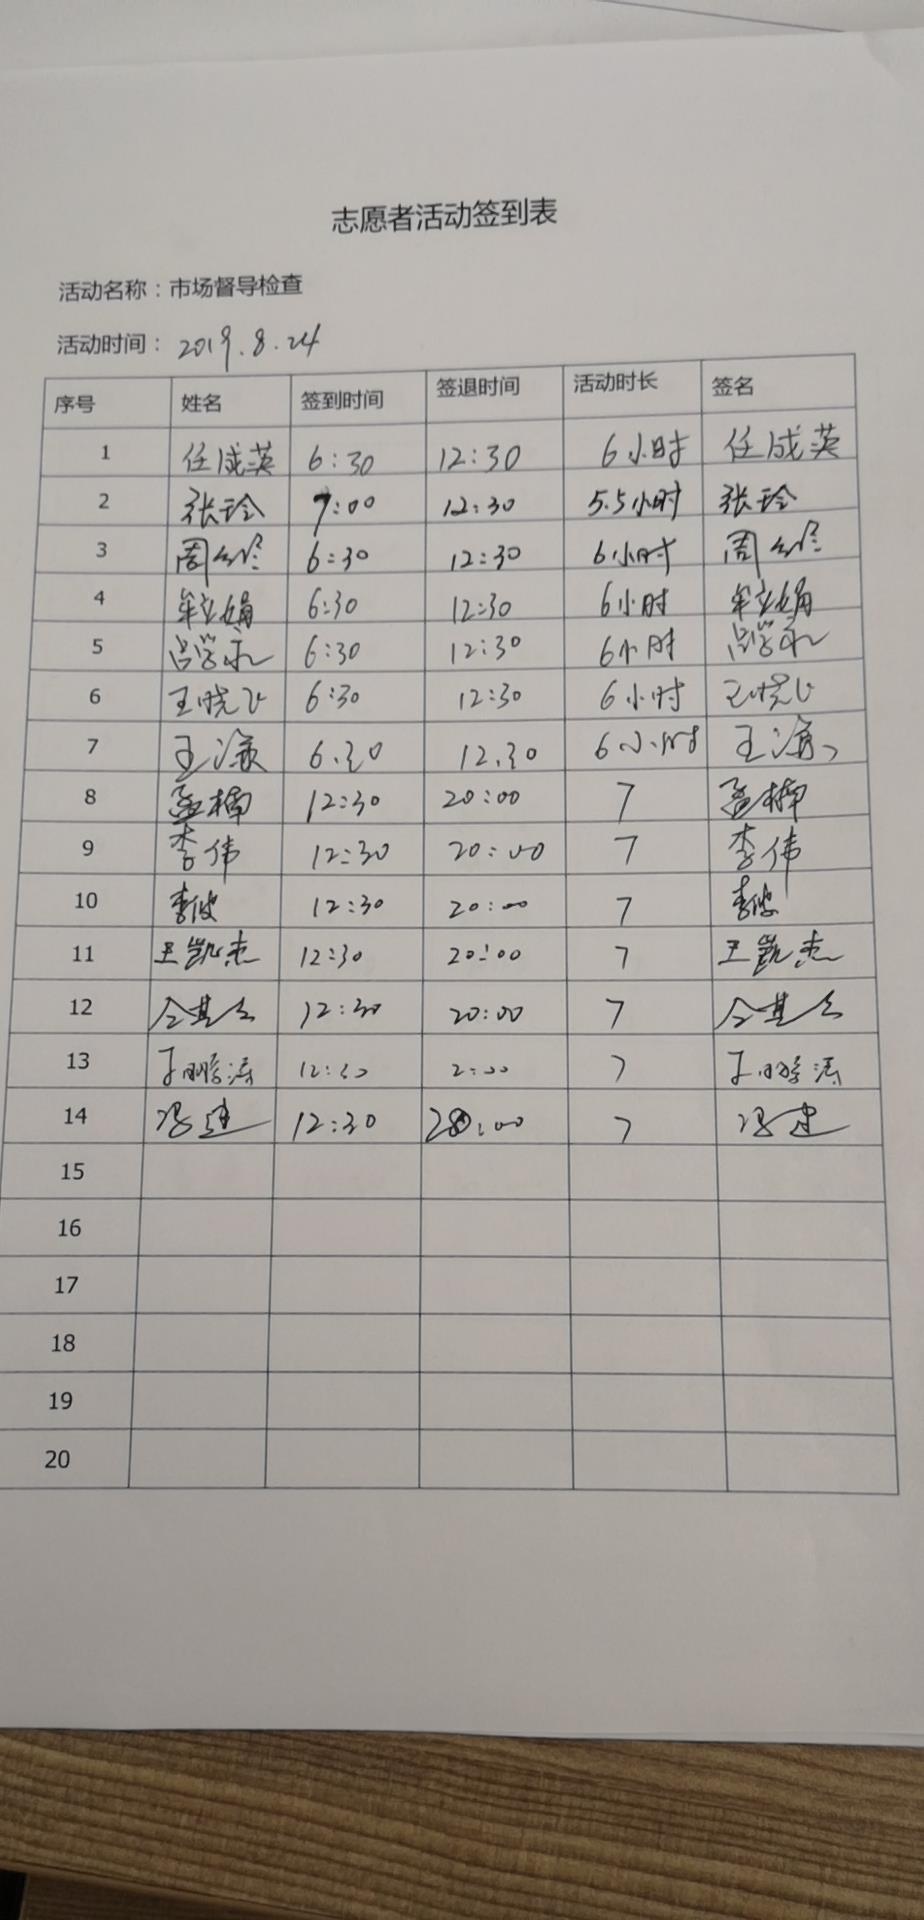 志愿者活动签到表
活动名称：市场督导检查
活动时间：2019.8.24
序号 姓名 签到时间 签退时间 活动时长 签名
1 任成英 6:30 12:30 6小时 任成英
2 张玲 7:00 12:30 5.5小时 张玲
3 周 6:30 12:30 6小时 周
4 牟立娟 6:30 12:30 6小时 牟立娟
5 吕学永 6:30 12:30 6小时 吕学永
6 王晓飞 6:30 12:30 6小时 王晓飞
7 王 6.30 12.30 6小时 王
8 孟楠 12:30 20:00 7 孟楠
9 李伟 12:30 20:00 7 李伟
10 李波 12:30 20:00 7 李波
11 王凯杰 12:30 20:00 7 王凯杰
12 12:30 20:00 7
13 于鹏涛 12:30 2:00 7 于鹏涛
14 冯建 12:30 20:00 7 冯建
15
16
17
18
19
20